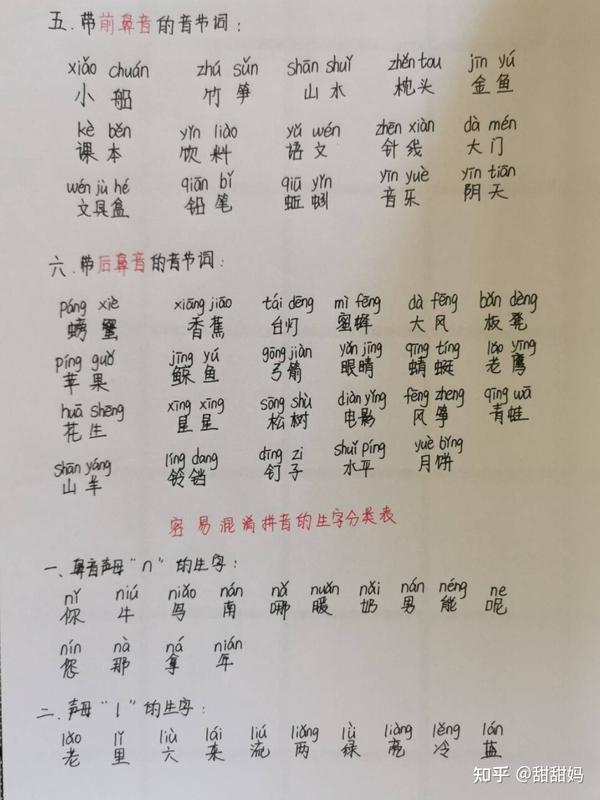 五.带前鼻音的音节词:
xiǎo chuán zhú sǔn shān shuǐ zhěn tou jīn yú
小船 竹笋 山水 枕头 金鱼
kè běn yǐn liào yǔ wén zhēn xiàn dà mén
课本 饮料 语文 针线 大门
wén jù hé qiān bǐ qiū yǐn yīn yuè yīn tiān
文具盒 铅笔 蚯蚓 音乐 阴天
六.带后鼻音的音节词:
páng xiè xiāng jiāo tái dēng mì fēng dà fēng bǎn dèng
螃蟹 香蕉 台灯 蜜蜂 大风 板凳
píng guǒ jīng yú gōng jiàn yǎn jīng qīng tíng lǎo yīng
苹果 鲸鱼 弓箭 眼睛 蜻蜓 老鹰
huā shēng xīng xīng sōng shù diàn yǐng fēng zheng qīng wā
花生 星星 松树 电影 风筝 青蛙
shān yáng líng dang dīng zi shuǐ píng yuè bǐng
山羊 铃铛 钉子 水平 月饼
容易混淆拼音的生字分类表
一、鼻音声母"n"的生字:
nǐ niú niǎo nán nǎ nuǎn nǎi nán néng ne
你 牛 鸟 南 哪 暖 奶 男 能 呢
nín nà ná nián
您 那 拿 年
二.声母"l"的生字:
lǎo lǐ liù lái liú liǎng lǜ liàng lěng lán
老 里 六 来 流 两 绿 亮 冷 蓝
知乎 @甜甜妈